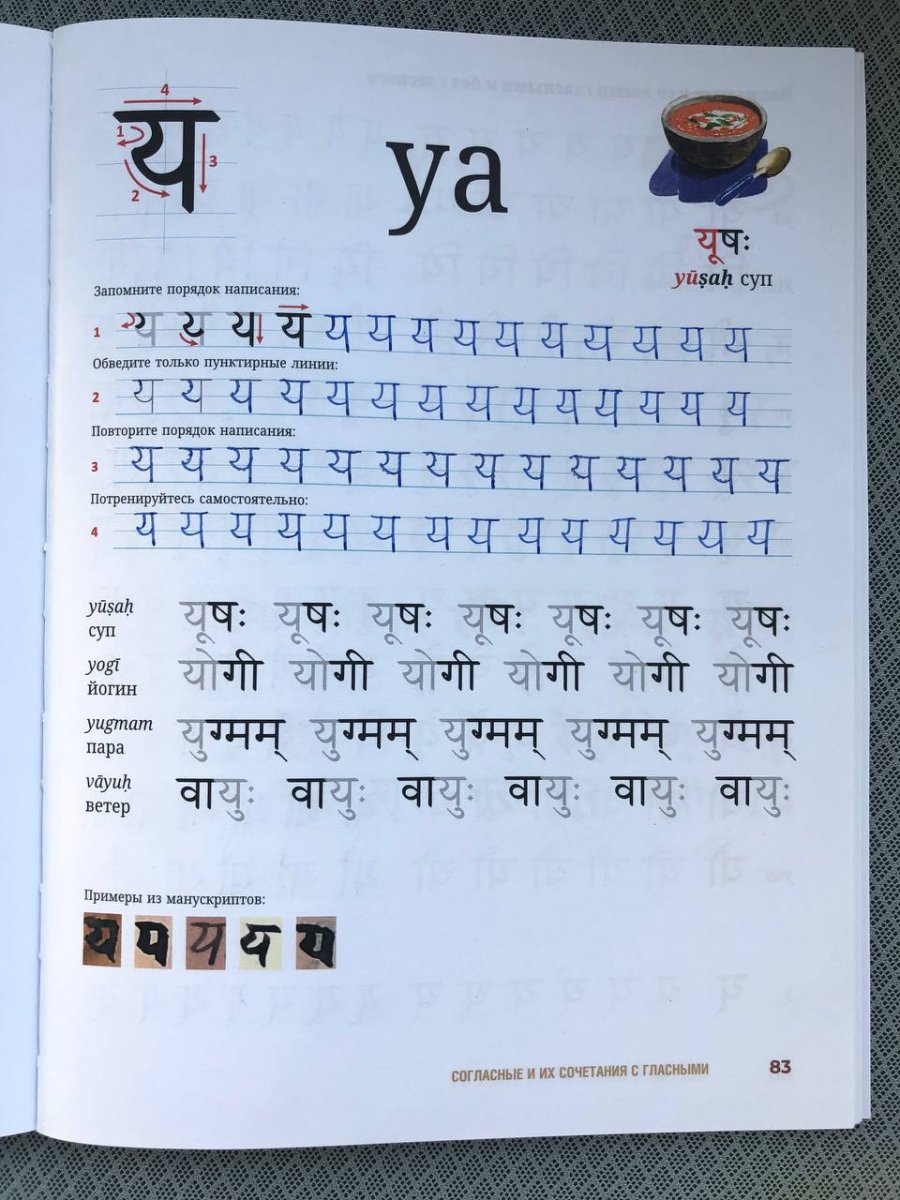 4
1
य
3
2
ya
यूषः
yūṣaḥ суп
Запомните порядок написания:
1 य य य य य य य य य य य य य य
Обведите только пунктирные линии:
2 य य य य य य य य य य य य य य
Повторите порядок написания:
3 य य य य य य य य य य य य य य
Потренируйтесь самостоятельно:
4 य य य य य य य य य य य य य य
yūṣaḥ यूषः यूषः यूषः यूषः यूषः यूषः यूषः
суп
yogī योगी योगी योगी योगी योगी योगी
йогин
yugmam युग्मम् युग्मम् युग्मम् युग्मम् युग्मम्
пара
vāyuḥ वायुः वायुः वायुः वायुः वायुः वायुः
ветер
Примеры из манускриптов:
य य य य य
СОГЛАСНЫЕ И ИХ СОЧЕТАНИЯ С ГЛАСНЫМИ 83